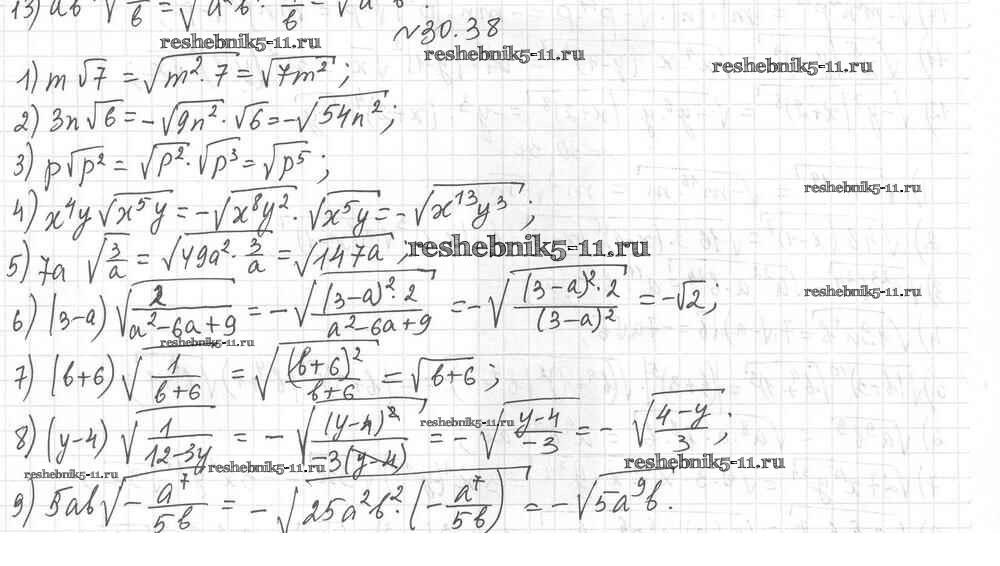 13) ab · √(1/b) = √(a²b · 1/b) = √a² .
№30.38
reshebnik5-11.ru
reshebnik5-11.ru
reshebnik5-11.ru
1) m√7 = √(m² · 7) = √(7m²) ;
2) 3n√6 = -√(9n²) · √6 = -√(54n²) ;
3) p√(p²) = √(p²) · √(p³) = √(p⁵) ;
reshebnik5-11.ru
4) x⁴y√(x⁵y) = -√(x⁸y²) · √(x⁵y) = -√(x¹³y³) ;
5) 7a √(3/a) = √(49a² · 3/a) = √(147a) ;
reshebnik5-11.ru
reshebnik5-11.ru
6) (3-a)√(2/(a²-6a+9)) = -√((3-a)² · 2/(a²-6a+9)) = -√((3-a)² · 2/(3-a)²) = -√2 ;
reshebnik5-11.ru
7) (b+6)√(1/(b+6)) = √((b+6)²/(b+6)) = √(b+6) ;
reshebnik5-11.ru
8) (y-4)√(1/(12-3y)) = -√((y-4)²/(-3(y-4))) = -√((y-4)/(-3)) = -√((4-y)/3) ;
reshebnik5-11.ru
reshebnik5-11.ru
reshebnik5-11.ru
9) 5ab√(-a⁷/(5b)) = -√(25a²b² · (-a⁷/(5b))) = -√(5a⁹b) .